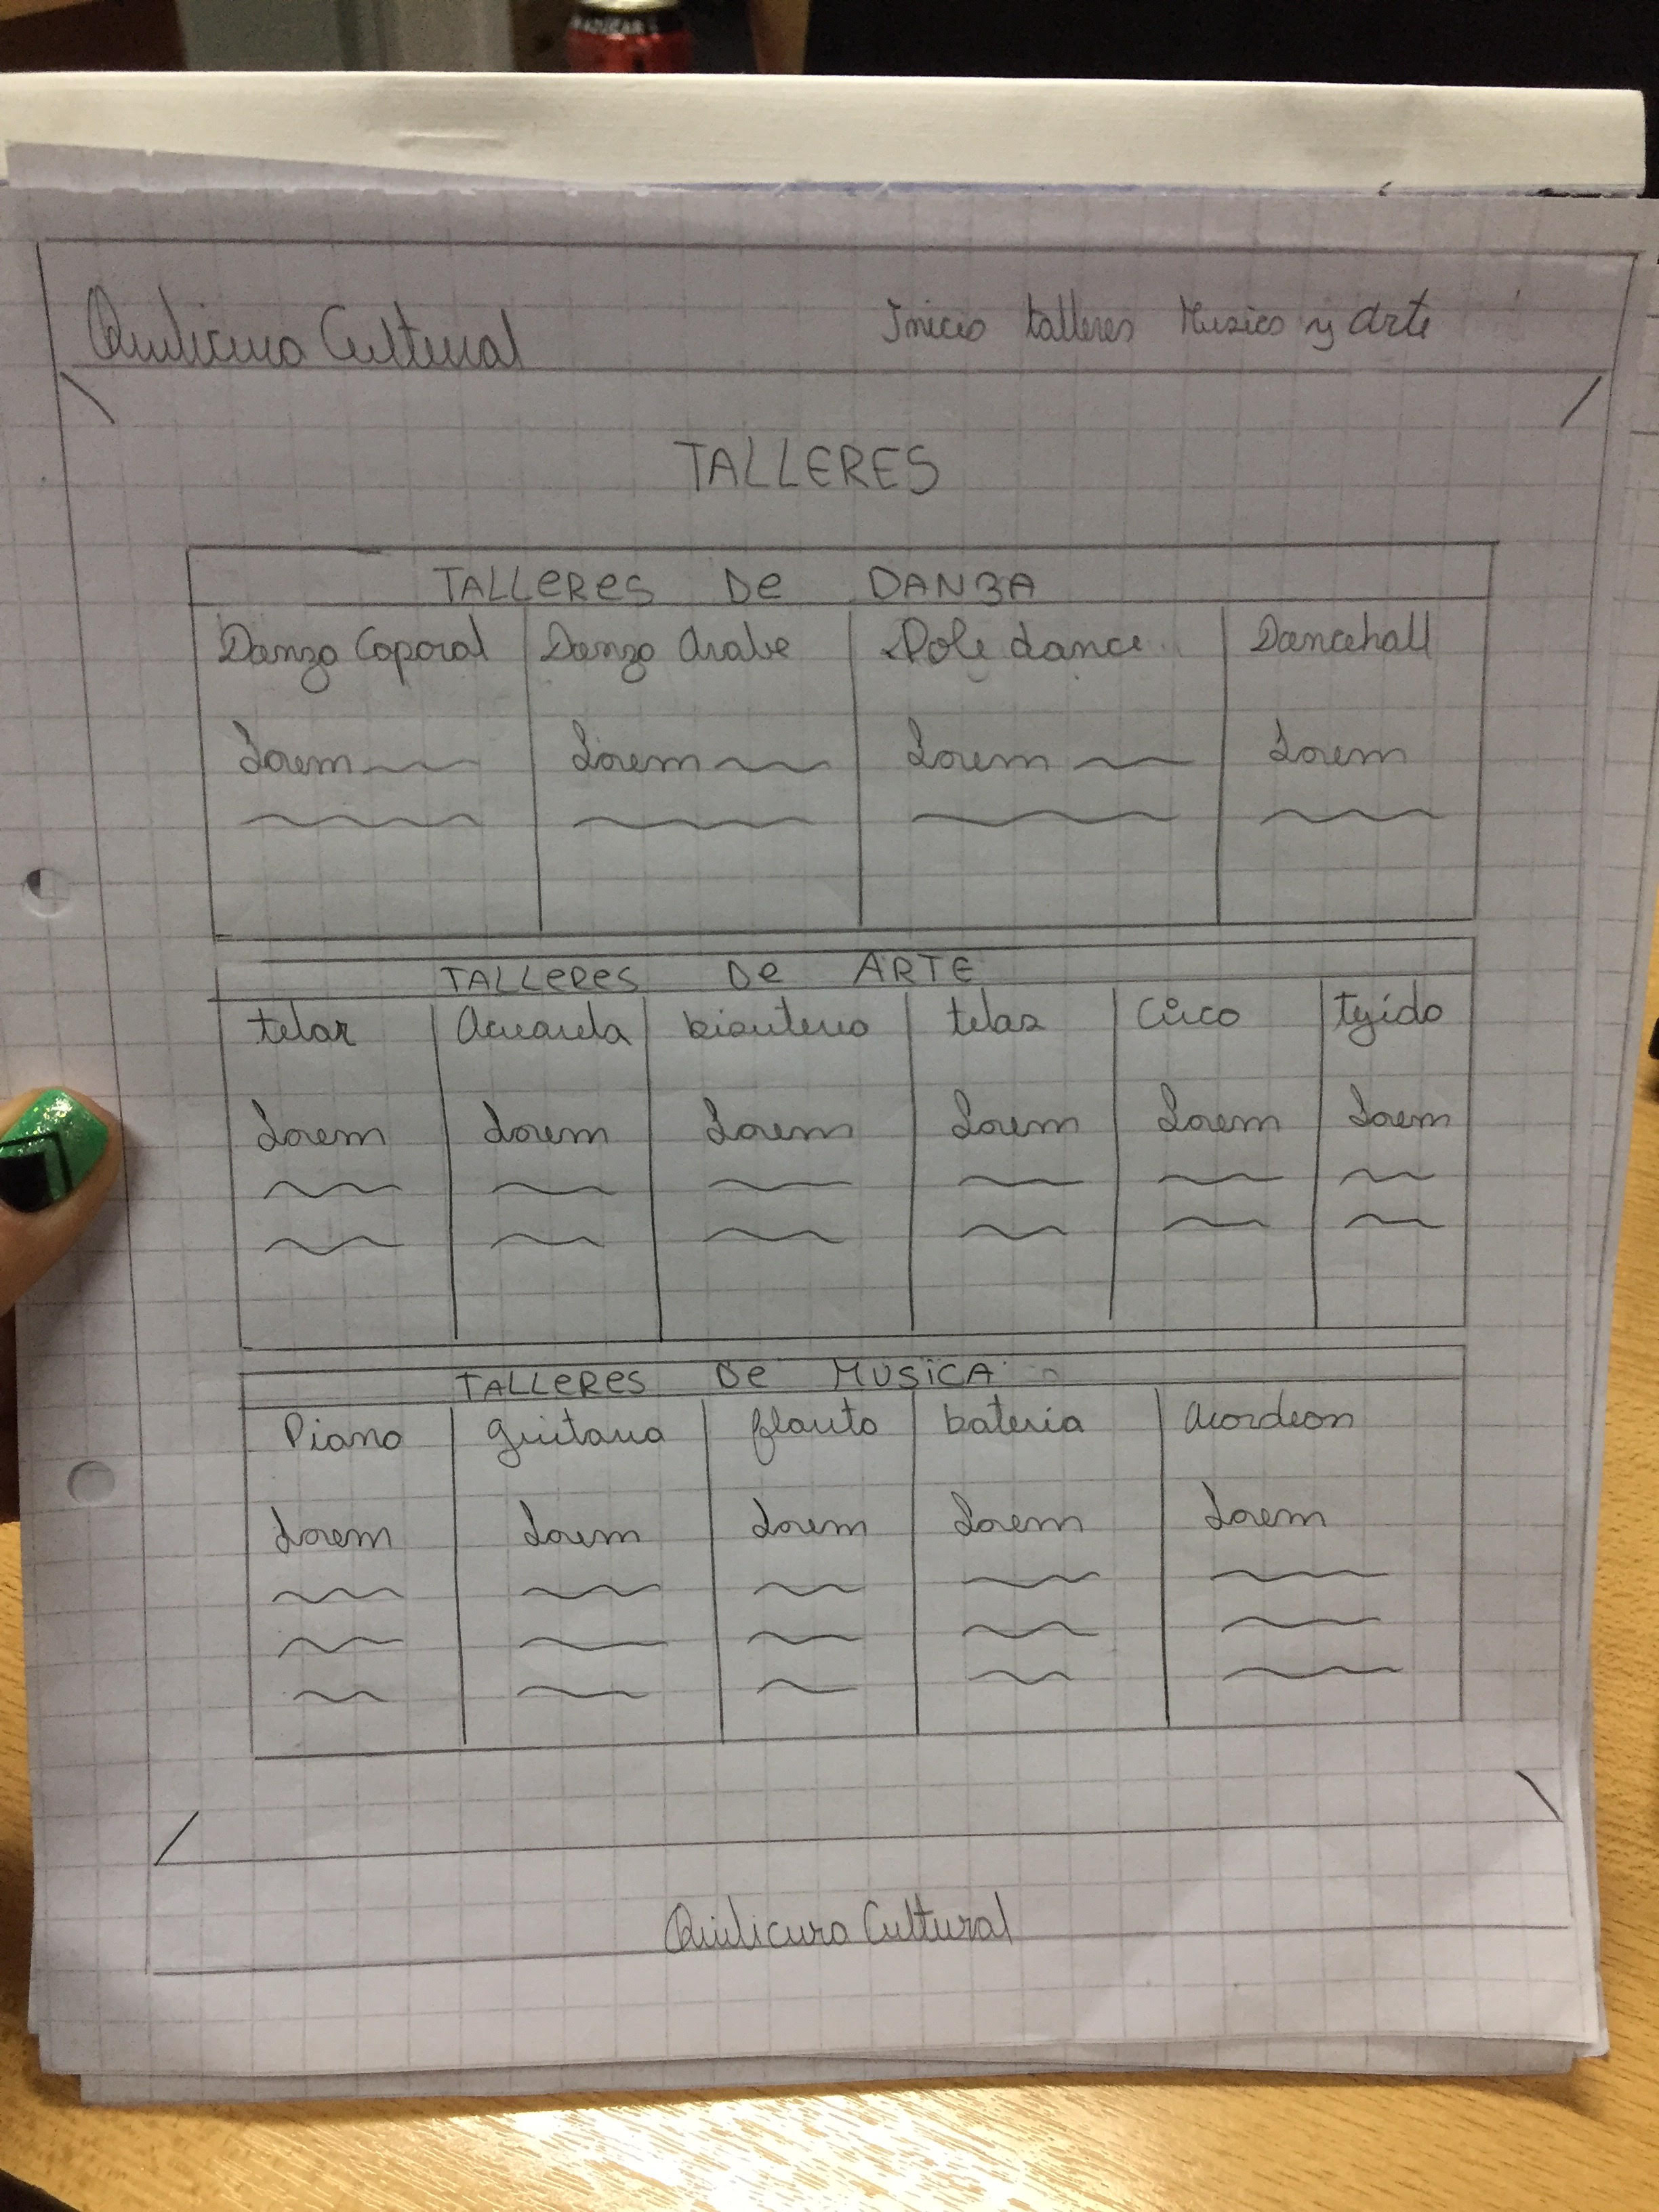 Quilicura Cultural Inicio talleres Musica y arte
TALLERES
TALLERES DE DANZA
Danza Caporal Danza Arabe Pole dance Dancehall
Lorem Lorem Lorem Lorem
TALLERES DE ARTE
telar Acuarela bisuteria telas Circo tejido
Lorem Lorem Lorem Lorem Lorem Lorem
TALLERES DE MUSICA
Piano guitarra flauta bateria acordeon
Lorem Lorem Lorem Lorem Lorem
Quilicura Cultural